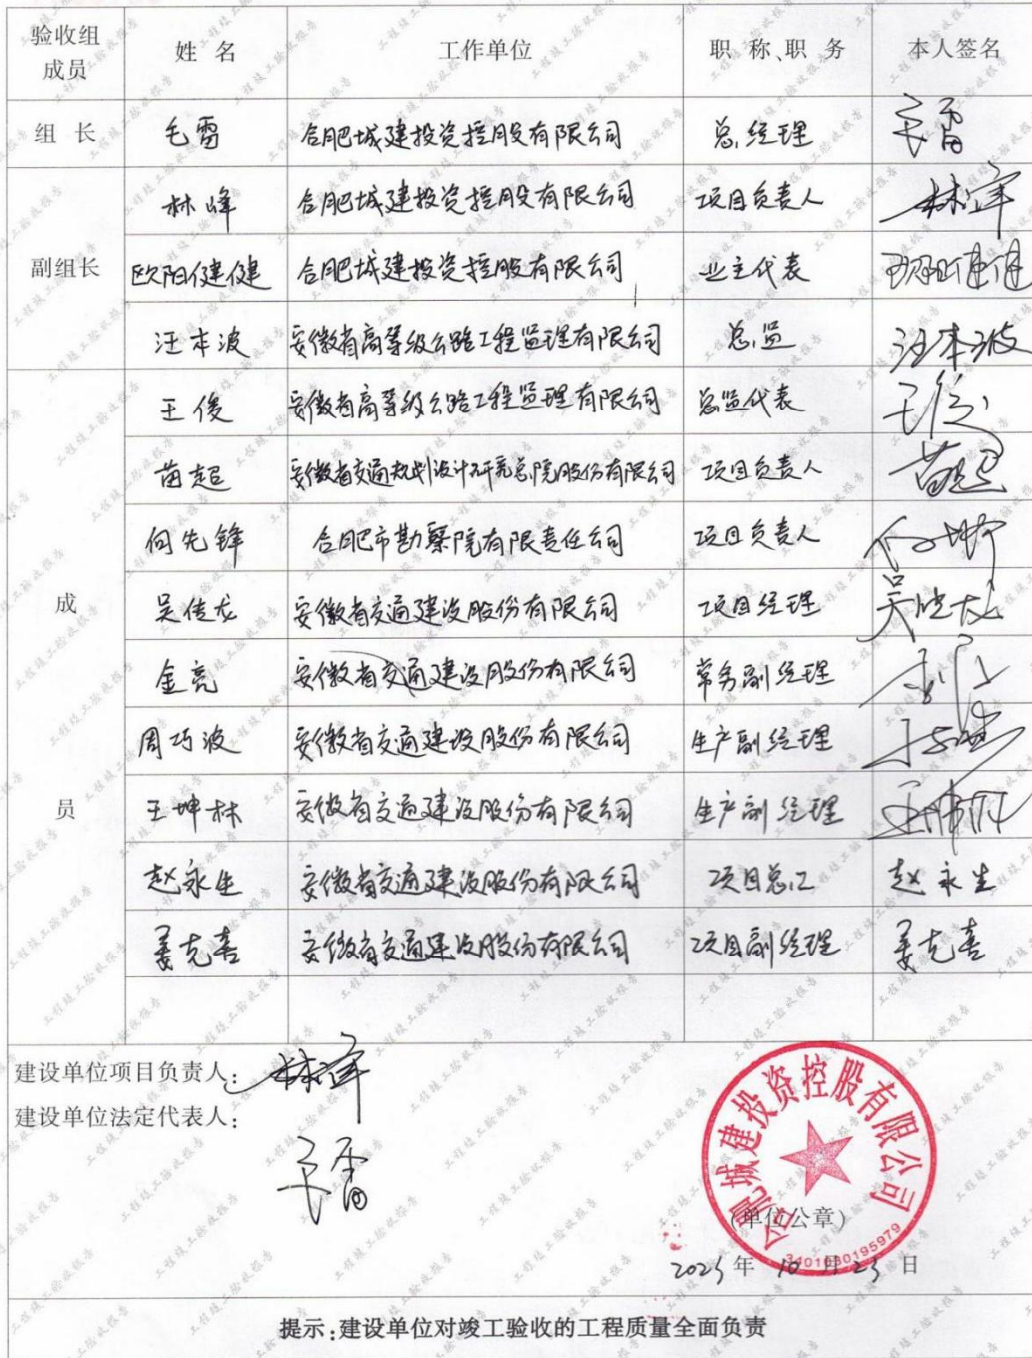 验收组成员 姓 名 工作单位 职 称、职 务 本人签名
组 长 毛雷 合肥城建投资控股有限公司 总经理 毛雷
林峰 合肥城建投资控股有限公司 项目负责人 林峰
副组长 欧阳健健 合肥城建投资控股有限公司 业主代表 欧阳健健
汪本波 安徽省高等级公路工程监理有限公司 总监 汪本波
王俊 安徽省高等级公路工程监理有限公司 总监代表 王俊
苗超 安徽省交通规划设计研究总院股份有限公司 项目负责人 苗超
何先锋 合肥市勘察院有限责任公司 项目负责人
成 吴传龙 安徽省交通建设股份有限公司 项目经理
金亮 安徽省交通建设股份有限公司 常务副经理
周巧波 安徽省交通建设股份有限公司 生产副经理
员 王坤林 安徽省交通建设股份有限公司 生产副经理
赵永生 安徽省交通建设股份有限公司 项目总工 赵永生
姜克喜 安徽省交通建设股份有限公司 项目副经理 姜克喜
建设单位项目负责人: 林峰
建设单位法定代表人:
毛雷
合肥城建投资控股有限公司
(单位公章)
3401030195979
年 10 月 23 日
提示:建设单位对竣工验收的工程质量全面负责
工程竣工验收报告